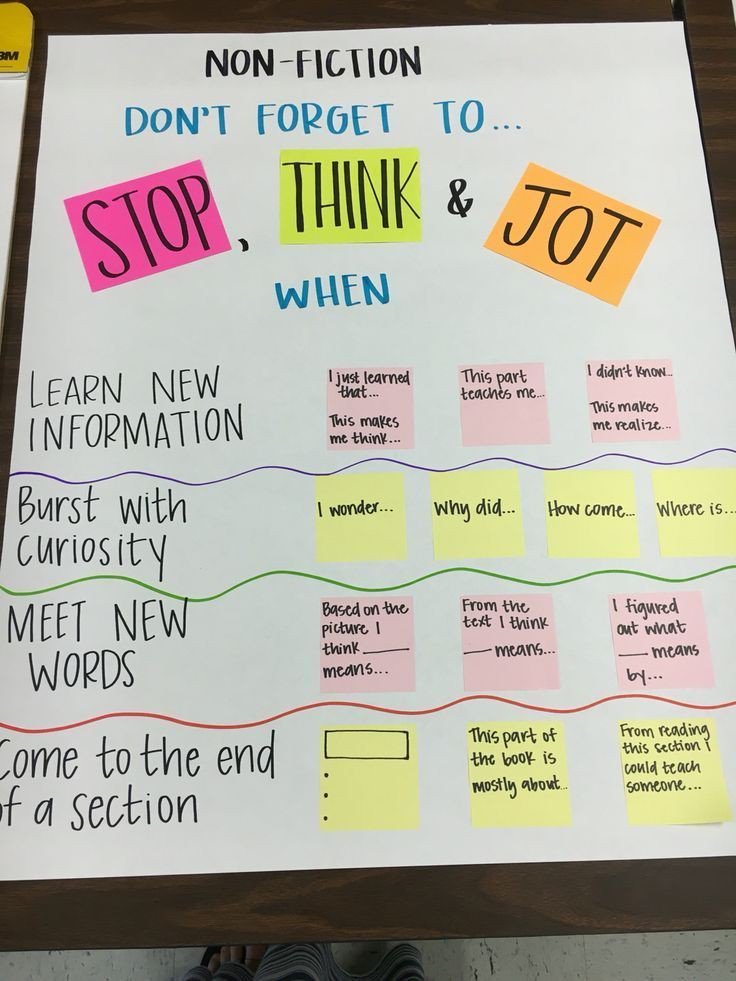 3M
NON-FICTION
DON'T FORGET TO...
STOP, THINK & JOT
WHEN
LEARN NEW
INFORMATION
I just learned
that...
This makes
me think...
This part
teaches me...
I didn't know...
This makes
me realize...
Burst with
curiosity
I wonder...
Why did...
How come...
Where is...
MEET NEW
WORDS
Based on the
picture I
think ____
means...
From the
text I think
___ means...
I figured
out what
____ means
by...
Come to the end
of a section
This part of
the book is
mostly about...
From reading
this section I
could teach
someone...